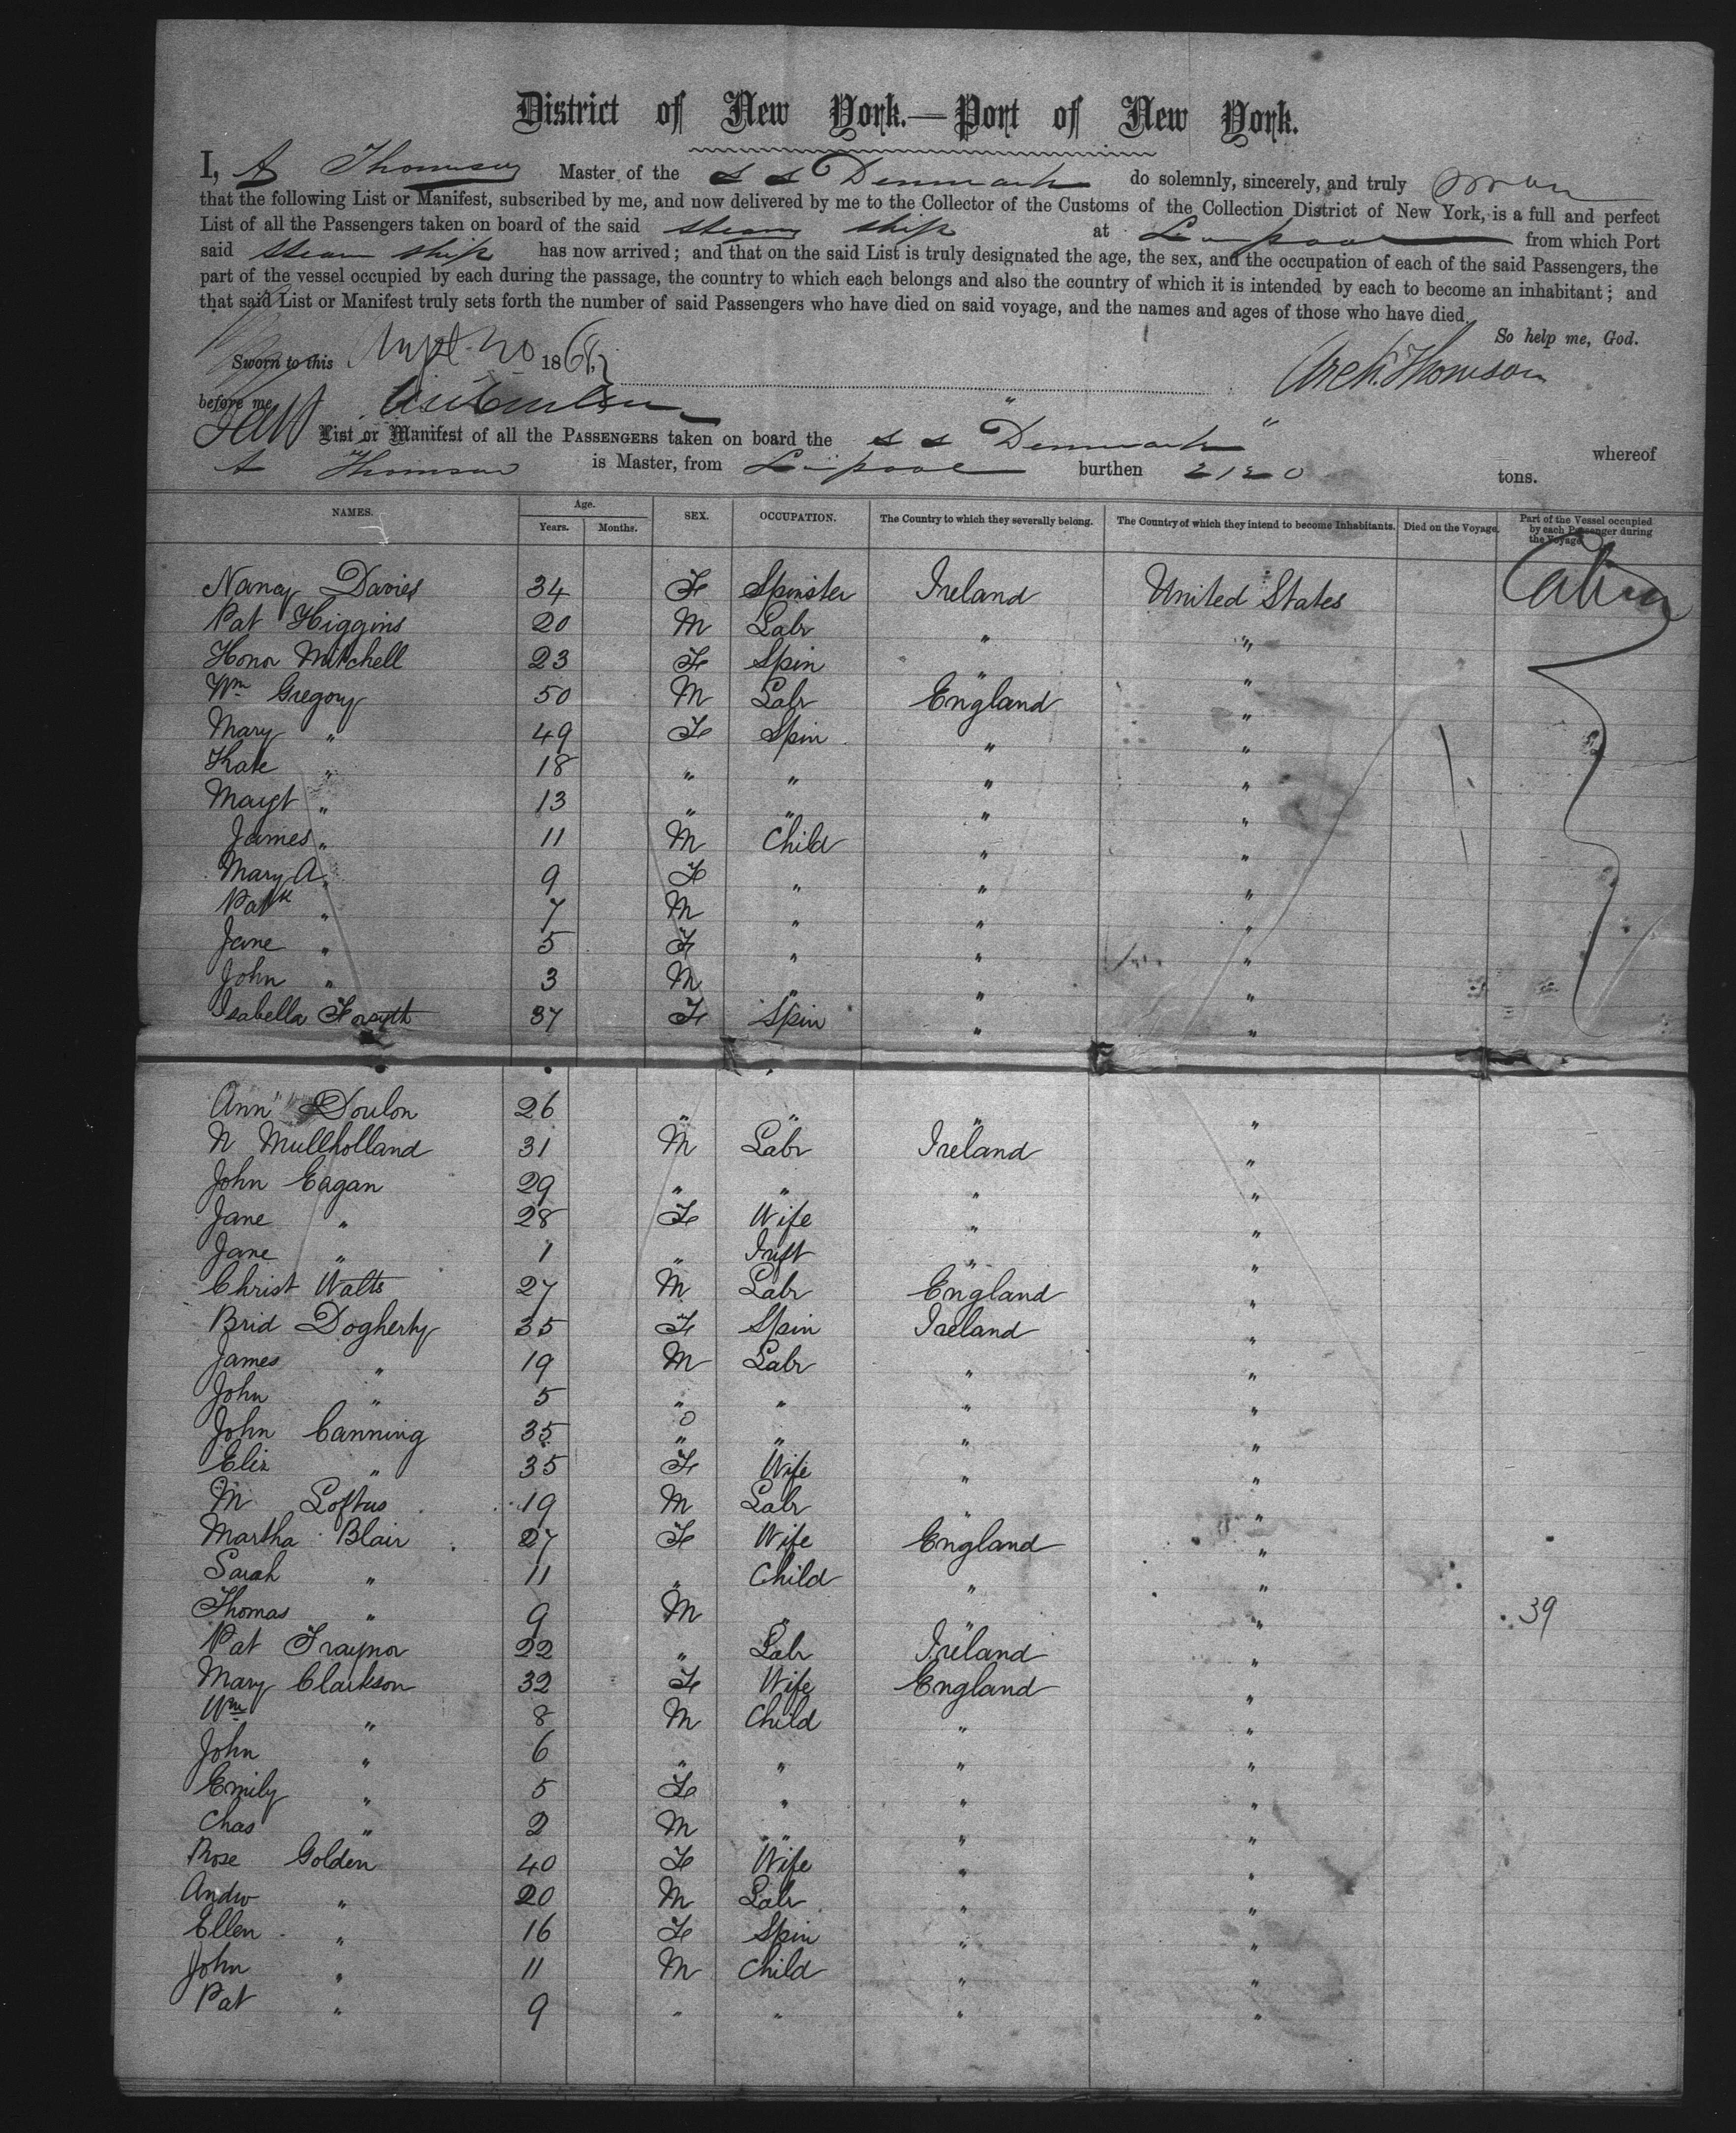 District of New York.—Port of New York.
I, A Thomson Master of the S S Denmark do solemnly, sincerely, and truly swear
that the following List or Manifest, subscribed by me, and now delivered by me to the Collector of the Customs of the Collection District of New York, is a full and perfect
List of all the Passengers taken on board of the said steam ship at Liverpool from which Port
said steam ship has now arrived; and that on the said List is truly designated the age, the sex, and the occupation of each of the said Passengers, the
part of the vessel occupied by each during the passage, the country to which each belongs and also the country of which it is intended by each to become an inhabitant; and
that said List or Manifest truly sets forth the number of said Passengers who have died on said voyage, and the names and ages of those who have died.
So help me, God.
Sworn to this Sept 20 186 Arch. Thomson
before me
List or Manifest of all the PASSENGERS taken on board the S S "Denmark" whereof
A Thomson is Master, from Liverpool burthen 2120 tons.
NAMES. Age. Years. Months. SEX. OCCUPATION. The Country to which they severally belong. The Country of which they intend to become Inhabitants. Died on the Voyage. Part of the Vessel occupied by each Passenger during the Voyage
Nancy Davies 34 Fe Spinster Ireland United States Cabin
Pat Higgins 20 M Labr " "
Honor Mitchell 23 Fe Spin " "
Wm Gregory 50 M Labr England "
Mary " 49 Fe Spin " "
Kate " 18 " " " "
Magt " 13 " " " "
James " 11 M Child " "
Mary A " 9 Fe " " "
Patk " 7 M " " "
Jane " 5 Fe " " "
John " 3 M " " "
Isabella Forsyth 37 Fe Spin " "
Ann Doulon 26 " " " "
N Mullholland 31 M Labr Ireland "
John Eagan 29 " " " "
Jane " 28 Fe Wife " "
Jane " 1 " Inft " "
Christ Watts 27 M Labr England "
Brid Dogherty 35 Fe Spin Ireland "
James " 19 M Labr " "
John " 5 " " " "
John Canning 35 " " " "
Eliz " 35 Fe Wife " "
M Loftus 19 M Labr " "
Martha Blair 27 Fe Wife England "
Sarah " 11 " Child " "
Thomas " 9 M " " 39
Pat Traynor 22 " Labr Ireland "
Mary Clarkson 32 Fe Wife England "
Wm " 8 M Child " "
John " 6 " " " "
Emily " 5 Fe " " "
Chas " 2 M " " "
Rose Golden 40 Fe Wife " "
Andw " 20 M Labr " "
Ellen " 16 Fe Spin " "
John " 11 M Child " "
Pat " 9 " " " "